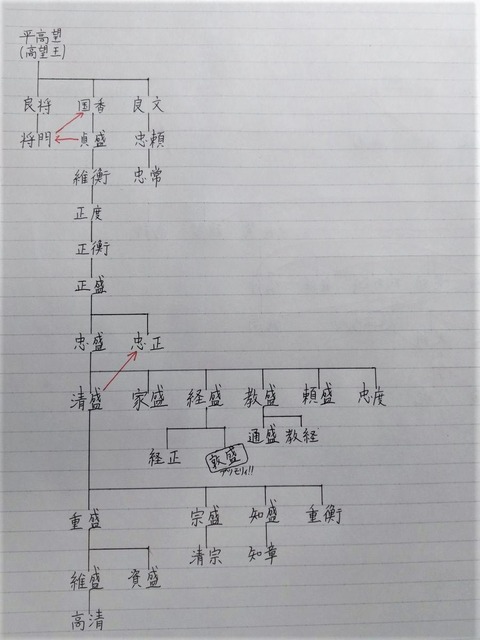 平高望
(高望王)
良将 国香 良文
将門 貞盛 忠頼
維衡 忠常
正度
正衡
正盛
忠盛 忠正
清盛 家盛 経盛 教盛 頼盛 忠度
通盛 教経
経正 敦盛
アツモリ!!
重盛 宗盛 知盛 重衡
清宗 知章
維盛 資盛
高清